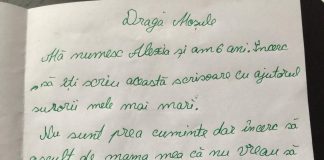 Dragă Moșule
Mă numesc Alexia și am 6 ani. Încerc
să îți scriu această scrisoare cu ajutorul
surorii mele mai mari.
Nu sunt prea cuminte dar încerc să
ascult de mama mea că nu vreau să